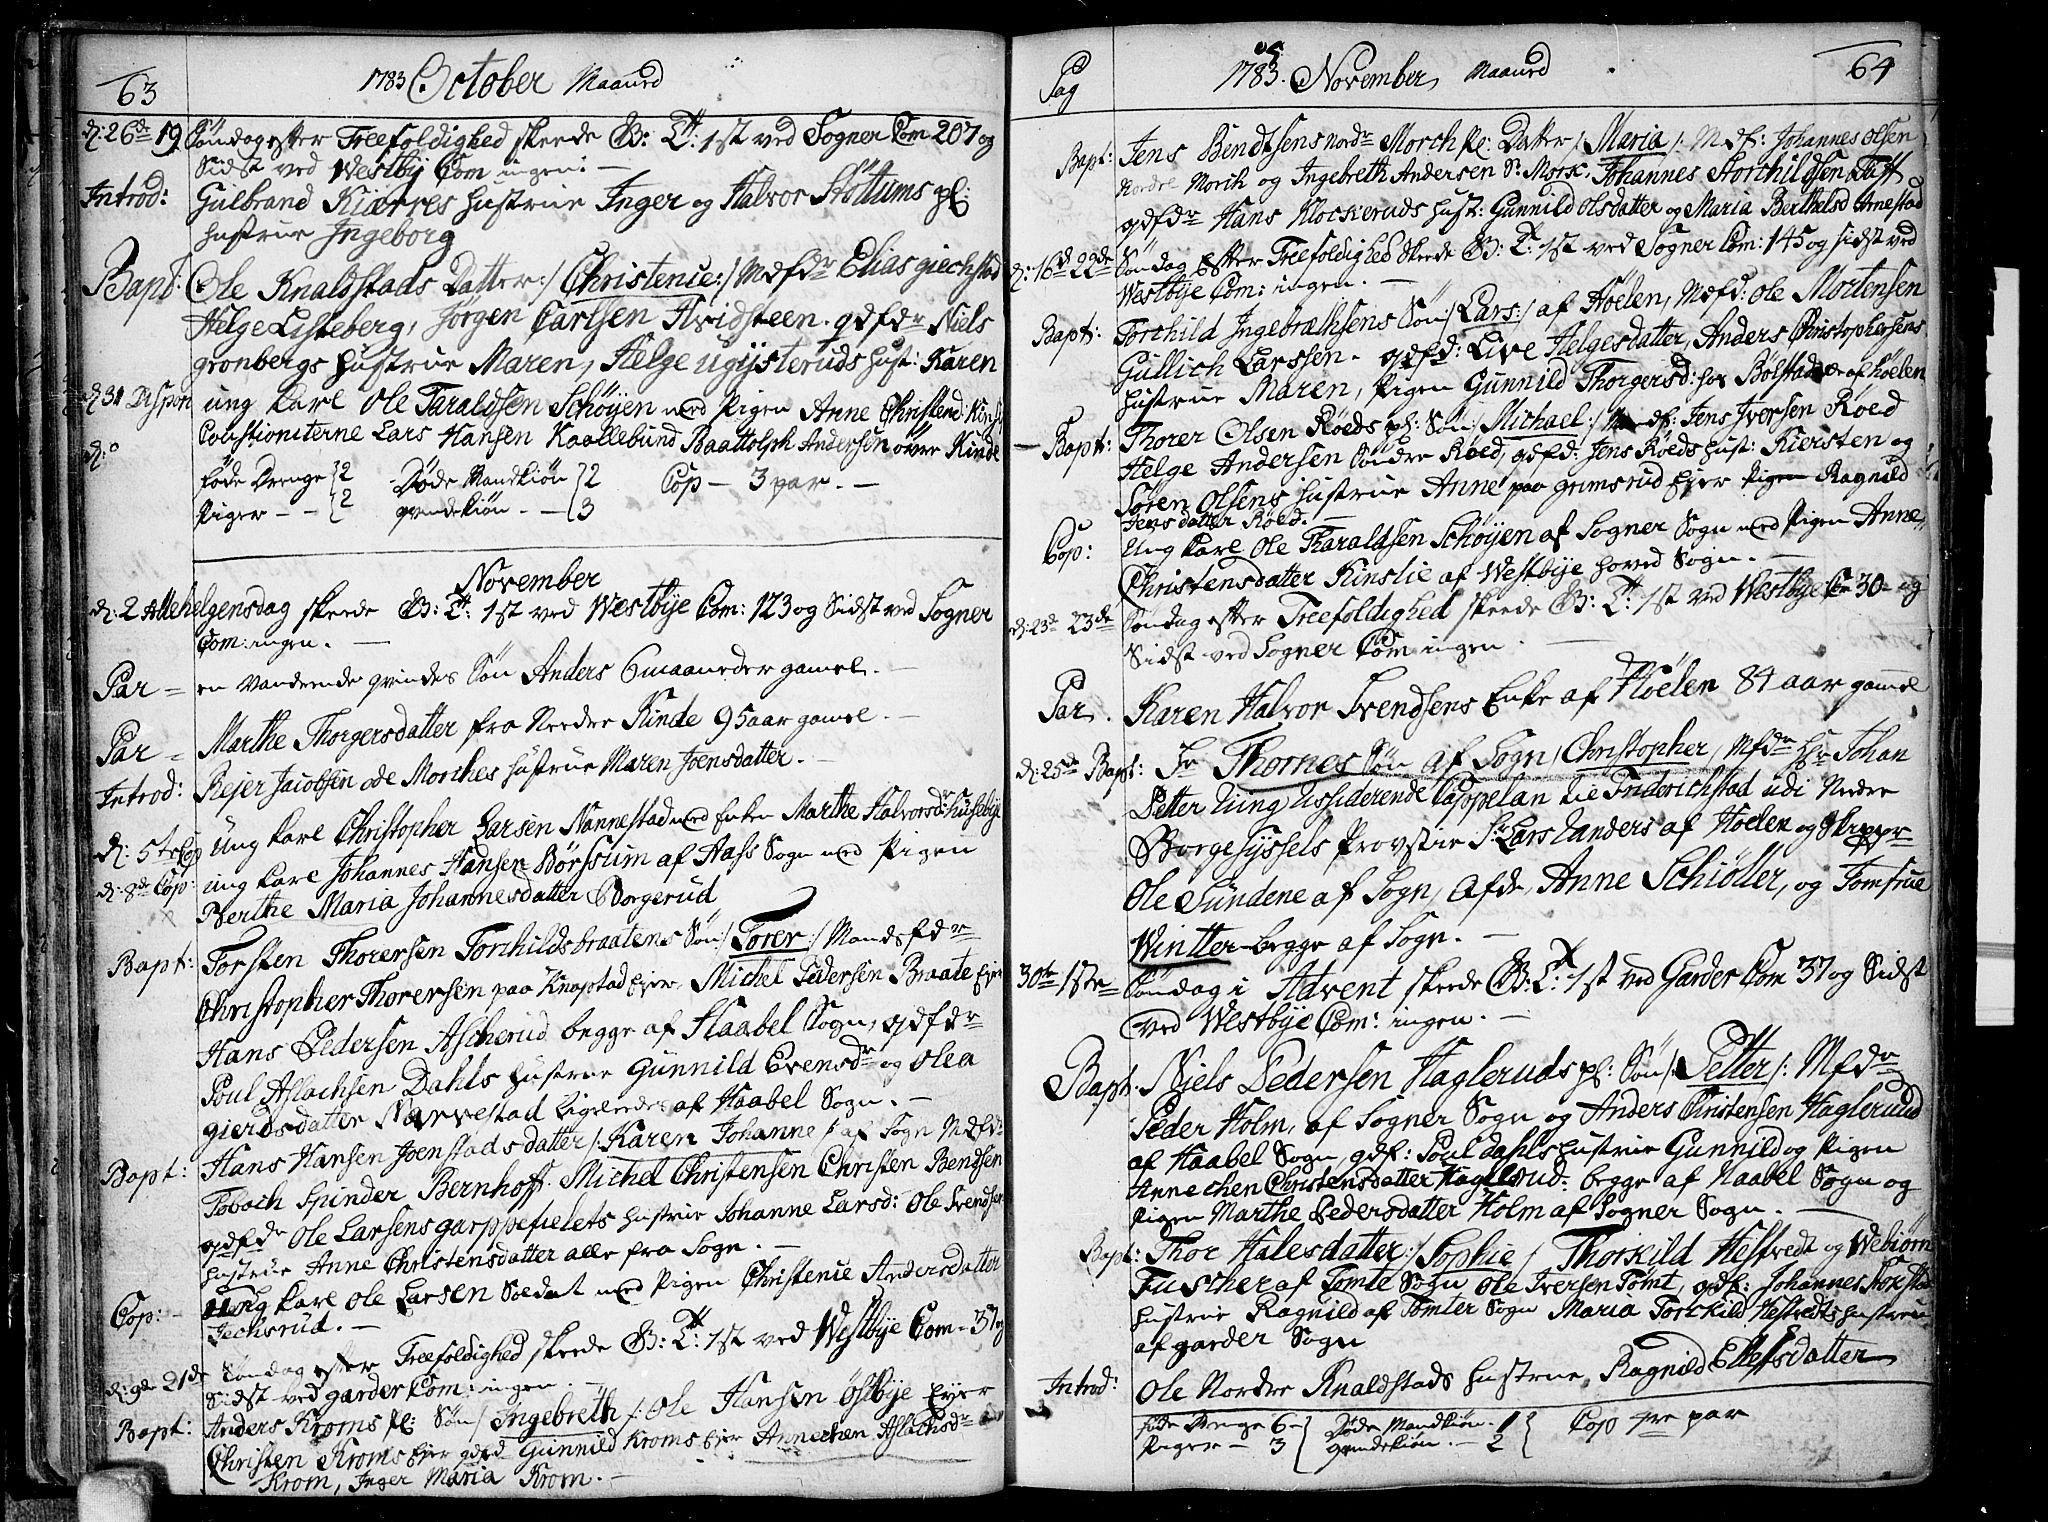 63
1783 October Maaned
d: 26de 19 Söndag efter Treefoldighed skeede G: T: 1st ved Sogner Com 207 og
Sidst ved Westby Com ingen: —
Introd: Gulbrand Kiærres Hustrue Inger og Halvor Stöttums pl:
Hustrue Ingeborg
Bapt: Ole Knaldstads Datter :/ Christence :/ Mdfdr Elias giechstad
Helge Listeberg, Jörgen Carlsen Hvidsteen. qdfdr Niels
gronbergs Hustrue Maren, Helge ugijsteruds Hust: Karen
d 31 Dispon ung Karl Ole Taraldsen Schöyen med Pigen Anne Christend: Kinsl
d:o Coustioniterne Lars Hansen Kaallebund Baattolph Andersen övre Kinde
föde Drenge 2 Döde Mandkiön 2 Cop — 3 par. —
Piger — — 2 qvindekiön. — 3
November
d: 2 Allehelgensdag skeede G: T: 1st ved Westbye Com: 123 og Sidst ved Sogner
Com: ingen. —
Par = en vandrende qvindes Sön Anders 6 maaneder gamel. —
Par = Marthe Thorgersdatter fra Nerdre Kinde 95 aar gamel. —
Introd: Rejer Jacobsen ode Morches Hustrue Maren Joensdatter. —
d: 5te Cop Ung Karl Christopher Larsen Nannestad med Enken Marthe Halvorsdr: Husebye
d: 8de Cop: ung Karl Johannes Hansen Börssum af Aass Sogn med Pigen
Berthe Maria Johannesdatter Borgerud
Bapt: Torsten Thorersen Torchildsbraatens Sön :/ Torer :/ Mandsfdr
Christopher Thorersen paa Knapstad Ejer, Michel Pedersen Braate Ejer
Hans Pedersen Ascherud begge af Haabel Sogn, qdfdr
Poul Aslachsen Dahls Hustrue Gunnild Evensdr og Olea
gierdsdatter Narvestad Ligeledes af Haabel Sogn. —
Bapt: Hans Hansen Joenstads datter /: Karen Johanne /: af Sogn Mdfdr
Tobach Spinder Bernhoff. Michel Christensen Christen Bendsen
qdfdr Ole Larsens garppefielets Hustrue Johanne Larsd: Ole Svendsen
Hustrue Anne Christensdatter alle fra Sogn. —
Cop: — Ung Karl Ole Larsen Soldat med Pigen Christence Andersdatter
Jechsrud. —
d: 9de 21de Söndag efter Treefoldighed skeede G: T: 1st ved Westbye Com: 37 og
Sidst ved garder Com: ingen. —
Bapt: Anders Kroms pl: Sön / Ingebreth /: Ole Hansen östbye Ejer
Christen Kroms Ejer qdfd Gunnild Kroms Ejer Annechen Aslachsdr
Krom, Inger Maria Krom. —
Pag
1783. November Maaned
64
Bapt: Jens Bendtsens nordr Morch pl: Datter / Maria /: Mdf: Johannes Olsen
Nordre Morch og Ingebreth Andersen Sr Morc, Johannes Torchildsen Taff
qdfdr Hans Klockeruds Hust: Gunnild Olsdatter og Maria Berthelsd Arnestad
d: 16d 22de Söndag Efter Treefoldighed Skeede G: T: 1st ved Sogner Com: 145 og sidst ved
Westbye Com: ingen. —
Bapt: Torchild Ingebrethsens Sön / Lars :/ af Höelen, Mdfd: Ole Mortensen
Gullich Larssen. qdfd: Live Helgesdatter, Anders Christophersens
Hustrue Maren, Pigen Gunnild Thorgersd: hos Bölstad af Höelen
— Bapt: Thorer Olsen Röeds pl: Sön :/ Michael :/ Mdf: Jens Iversen Röed
Helge Andersen Söndre Röed, qdfd: Jens Röeds Hust: Kiersten og
Sören Olsens Hustrue Anne paa Grimsrud Ejer Pigen Ragnild
Jens datter Röed. —
Cop: Ung Karl Ole Tharaldsen Schöyen af Sogner Sogn med Pigen Anne
Christensdatter Kinslie af Westbye Hoved Sogn. —
d: 23de 23de Söndag efter Treefoldighed skeede G: T: 1st ved Westbye Com 30 og
Sidst ved Sogner Com ingen —
Par. Karen Halvor Svendsens Enke af Höelen 84 aar gamel
d: 25de Bapt: Sr Thornes Sön af Sogn / Christopher / Mfdr Hr Johan
Petter Jüng Residerende Cappelan til Friderichstad udi Nedre
Borgesyssels Provstie Sr Lars Landers af Höelen og Skipper
Ole Sundene af Sogn, qfdr, Anne Schiötler, og Jomfrue
Wintter begge af Sogn. —
30te 1ste Söndag i Advent skeede G: T: 1st ved Garder Com 37 og Sidst
ved Westbye Com: ingen. —
Bapt. Niels Pedersen Haglerudspl: Sön /: Petter /: Mfdr
Peder Holm, af Sogner Sogn og Anders Christensen Haglerud
af Haabel Sogn, qdf: Poul Dahls Hustrue Gunnild og Pigen
Annechen Christensdatter Haglerud: begge af Haabel Sogn og
Pigen Marthe Pedersdatter Holm af Sogner Sogn. —
Bapt: Thor Halesdatter :/ Sophie / Thorkild Hestvedt og Webiörn
Fuscher af Tomte Sogn Ole Iversen Tomt, qdf: Johannes
Hustrue Ragnild af Tomter Sogn Maria Torckild Hestvedts Hustrue
af garder Sogn
Introd: Ole Nordre Knaldstads Hustrue, Ragnild Ellefsdatter
föde Drenge 6 Döde Mandkiön. 1 Cop 4re par
Piger — 3 qvindekiön. — 2